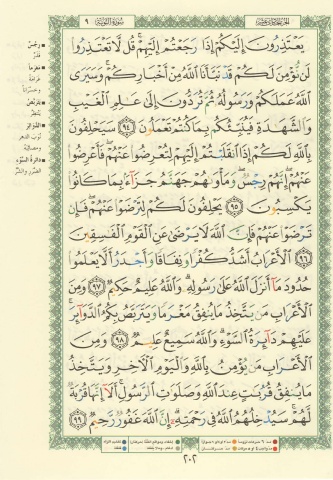 الجزء الحادي عشر
سورة التوبة ٩
يَعْتَذِرُونَ إِلَيْكُمْ إِذَا رَجَعْتُمْ إِلَيْهِمْ ۚ قُل لَّا تَعْتَذِرُوا۟
لَن نُّؤْمِنَ لَكُمْ قَدْ نَبَّأَنَا ٱللَّهُ مِنْ أَخْبَارِكُمْ ۚ وَسَيَرَى
ٱللَّهُ عَمَلَكُمْ وَرَسُولُهُۥ ثُمَّ تُرَدُّونَ إِلَىٰ عَٰلِمِ ٱلْغَيْبِ
وَٱلشَّهَٰدَةِ فَيُنَبِّئُكُم بِمَا كُنتُمْ تَعْمَلُونَ ﴿٩٤﴾ سَيَحْلِفُونَ
بِٱللَّهِ لَكُمْ إِذَا ٱنقَلَبْتُمْ إِلَيْهِمْ لِتُعْرِضُوا۟ عَنْهُمْ ۖ فَأَعْرِضُوا۟
عَنْهُمْ ۖ إِنَّهُمْ رِجْسٌ ۖ وَمَأْوَىٰهُمْ جَهَنَّمُ جَزَآءًۢ بِمَا كَانُوا۟
يَكْسِبُونَ ﴿٩٥﴾ يَحْلِفُونَ لَكُمْ لِتَرْضَوْا۟ عَنْهُمْ ۖ فَإِن
تَرْضَوْا۟ عَنْهُمْ فَإِنَّ ٱللَّهَ لَا يَرْضَىٰ عَنِ ٱلْقَوْمِ ٱلْفَٰسِقِينَ
﴿٩٦﴾ ٱلْأَعْرَابُ أَشَدُّ كُفْرًا وَنِفَاقًا وَأَجْدَرُ أَلَّا يَعْلَمُوا۟
حُدُودَ مَآ أَنزَلَ ٱللَّهُ عَلَىٰ رَسُولِهِۦ ۗ وَٱللَّهُ عَلِيمٌ حَكِيمٌ ﴿٩٧﴾ وَمِنَ
ٱلْأَعْرَابِ مَن يَتَّخِذُ مَا يُنفِقُ مَغْرَمًا وَيَتَرَبَّصُ بِكُمُ ٱلدَّوَآئِرَ ۚ
عَلَيْهِمْ دَآئِرَةُ ٱلسَّوْءِ ۗ وَٱللَّهُ سَمِيعٌ عَلِيمٌ ﴿٩٨﴾ وَمِنَ
ٱلْأَعْرَابِ مَن يُؤْمِنُ بِٱللَّهِ وَٱلْيَوْمِ ٱلْءَاخِرِ وَيَتَّخِذُ
مَا يُنفِقُ قُرُبَٰتٍ عِندَ ٱللَّهِ وَصَلَوَٰتِ ٱلرَّسُولِ ۚ أَلَآ إِنَّهَا قُرْبَةٌ
لَّهُمْ ۚ سَيُدْخِلُهُمُ ٱللَّهُ فِى رَحْمَتِهِۦٓ ۗ إِنَّ ٱللَّهَ غَفُورٌ رَّحِيمٌ ﴿٩٩﴾
رجس
قذر
مغرما
غرامة
وخسرانا
يتربص
ينتظر
الدوائر
نوب الدهر
ومصائبه
دائرة السوء
الضرر والشر
٢٠٢